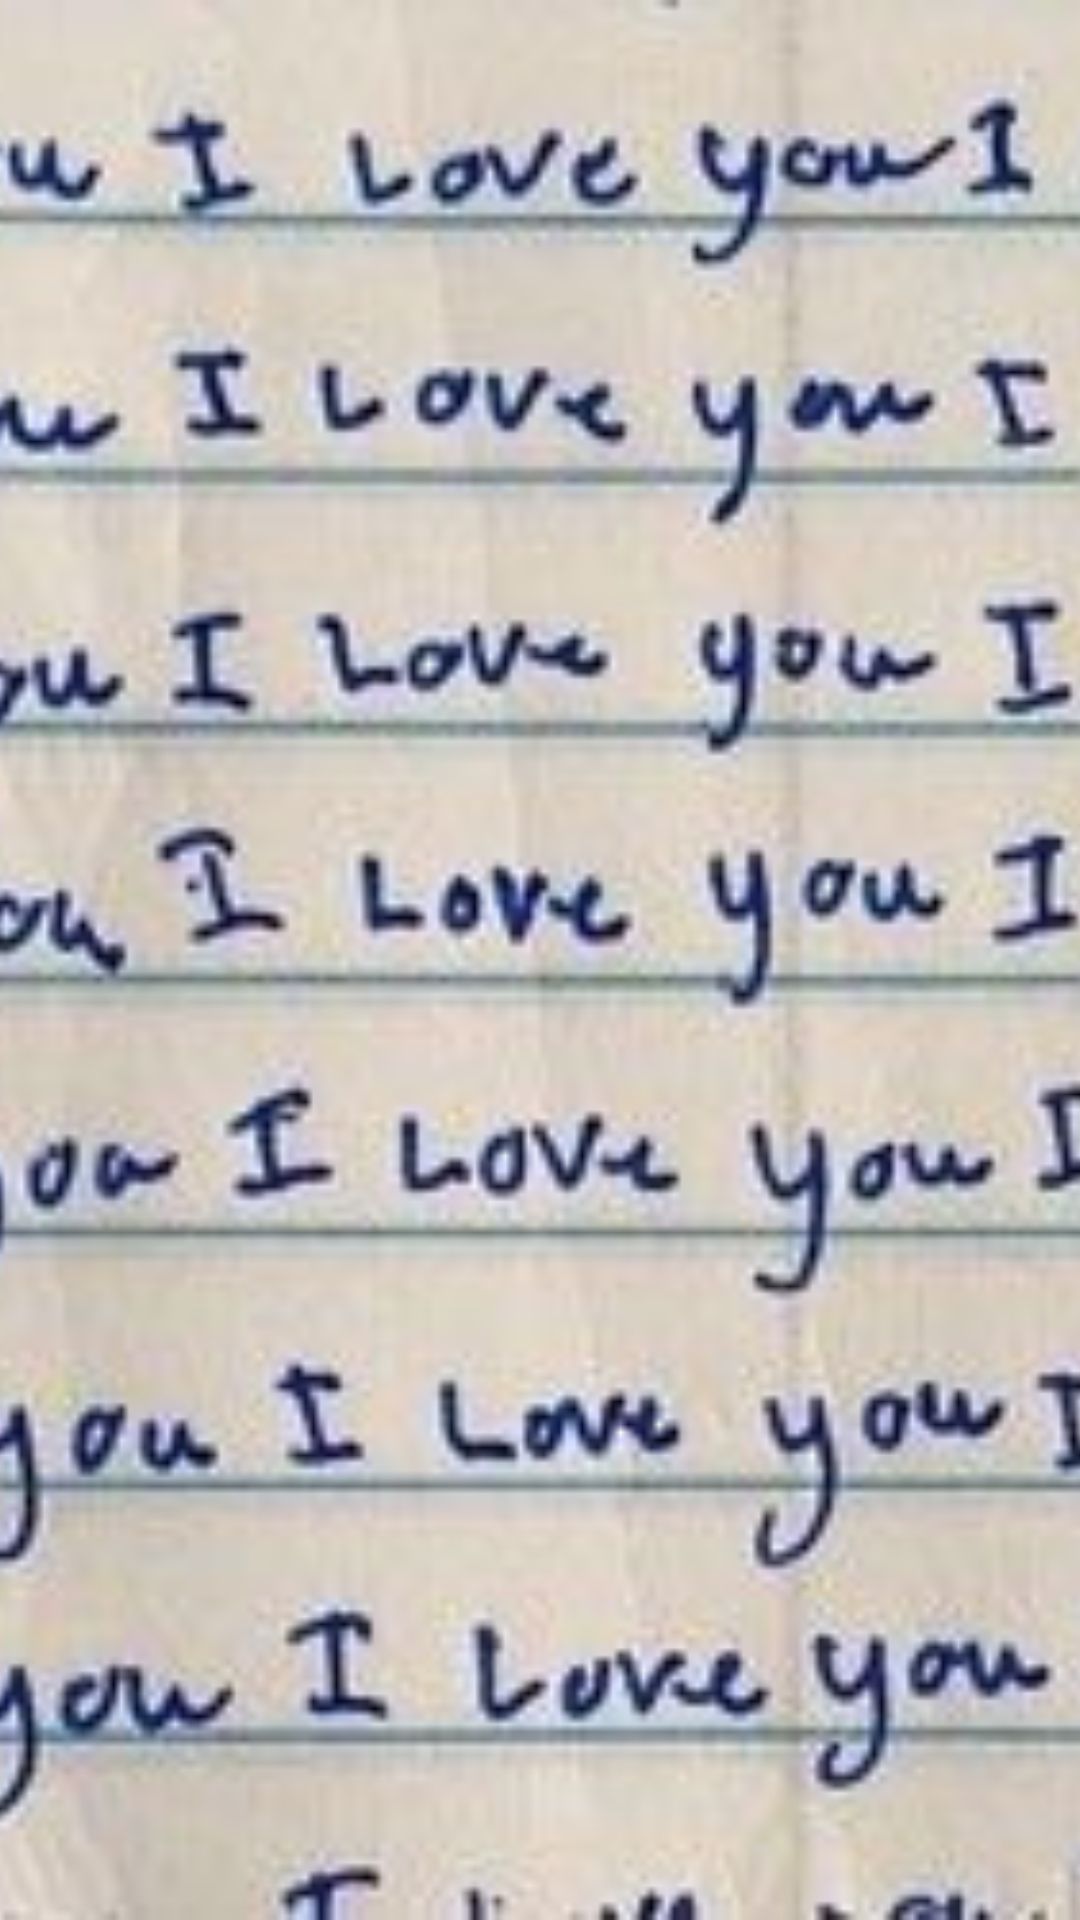 u I Love you I
ou I Love you I
ou I Love you I
ou I Love you I
you I Love you I
you I Love you I
you I Love you
I